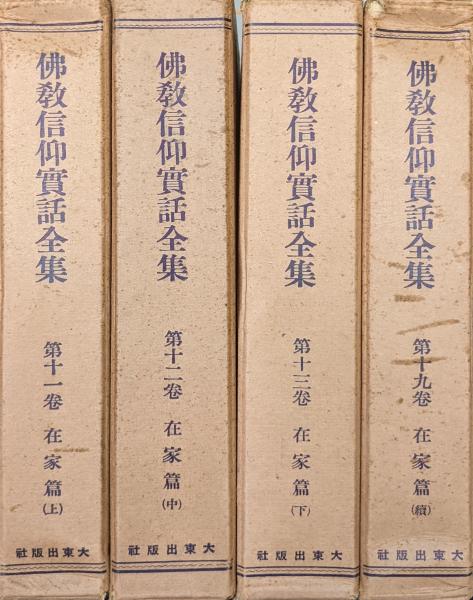 佛敎信仰實話全集
第十一卷 在家篇(上)
大東出版社
佛敎信仰實話全集
第十二卷 在家篇(中)
大東出版社
佛敎信仰實話全集
第十三卷 在家篇(下)
大東出版社
佛敎信仰實話全集
第十九卷 在家篇(續)
大東出版社